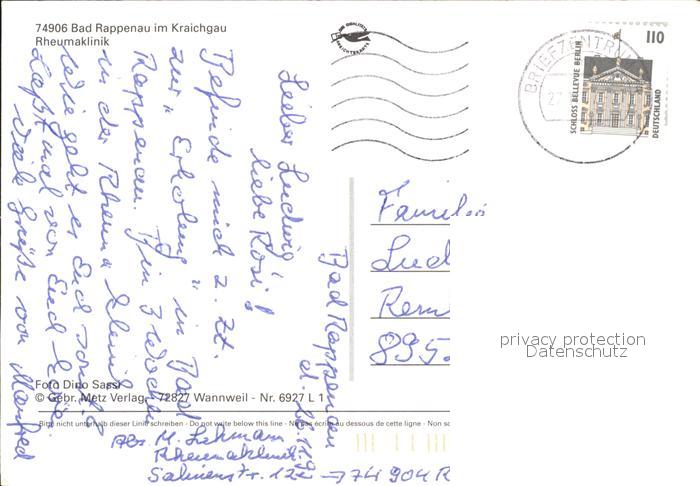 74906 Bad Rappenau im Kraichgau
Rheumaklinik
110
SCHLOSS BELLEVUE BERLIN
DEUTSCHLAND
BRIEFZENTRUM
Bad Rappenau
d. 26.11.9
Lieber Ludwig,
liebe Rosi!
Befinde mich z. Zt.
zur "Erholung" in Bad
Rappenau. Bin 3 Wochen
in der Rheuma Klinik
Wie geht es Euch sonst?
Laßt mal von Euch hören.
Viele Grüße von Manfred
Familie
Lud
Rem
895
privacy protection
Datenschutz
Foto Dino Sassi
© Gebr. Metz Verlag, 72827 Wannweil - Nr. 6927 L 1
Bitte nicht unterhalb dieser Linie schreiben - Do not write below this line - Ne pas écrire au dessous de cette ligne - Non sc
Abs. M. Lehmann
Rheumaklinik
Salinenstr. 12 → 74904 R